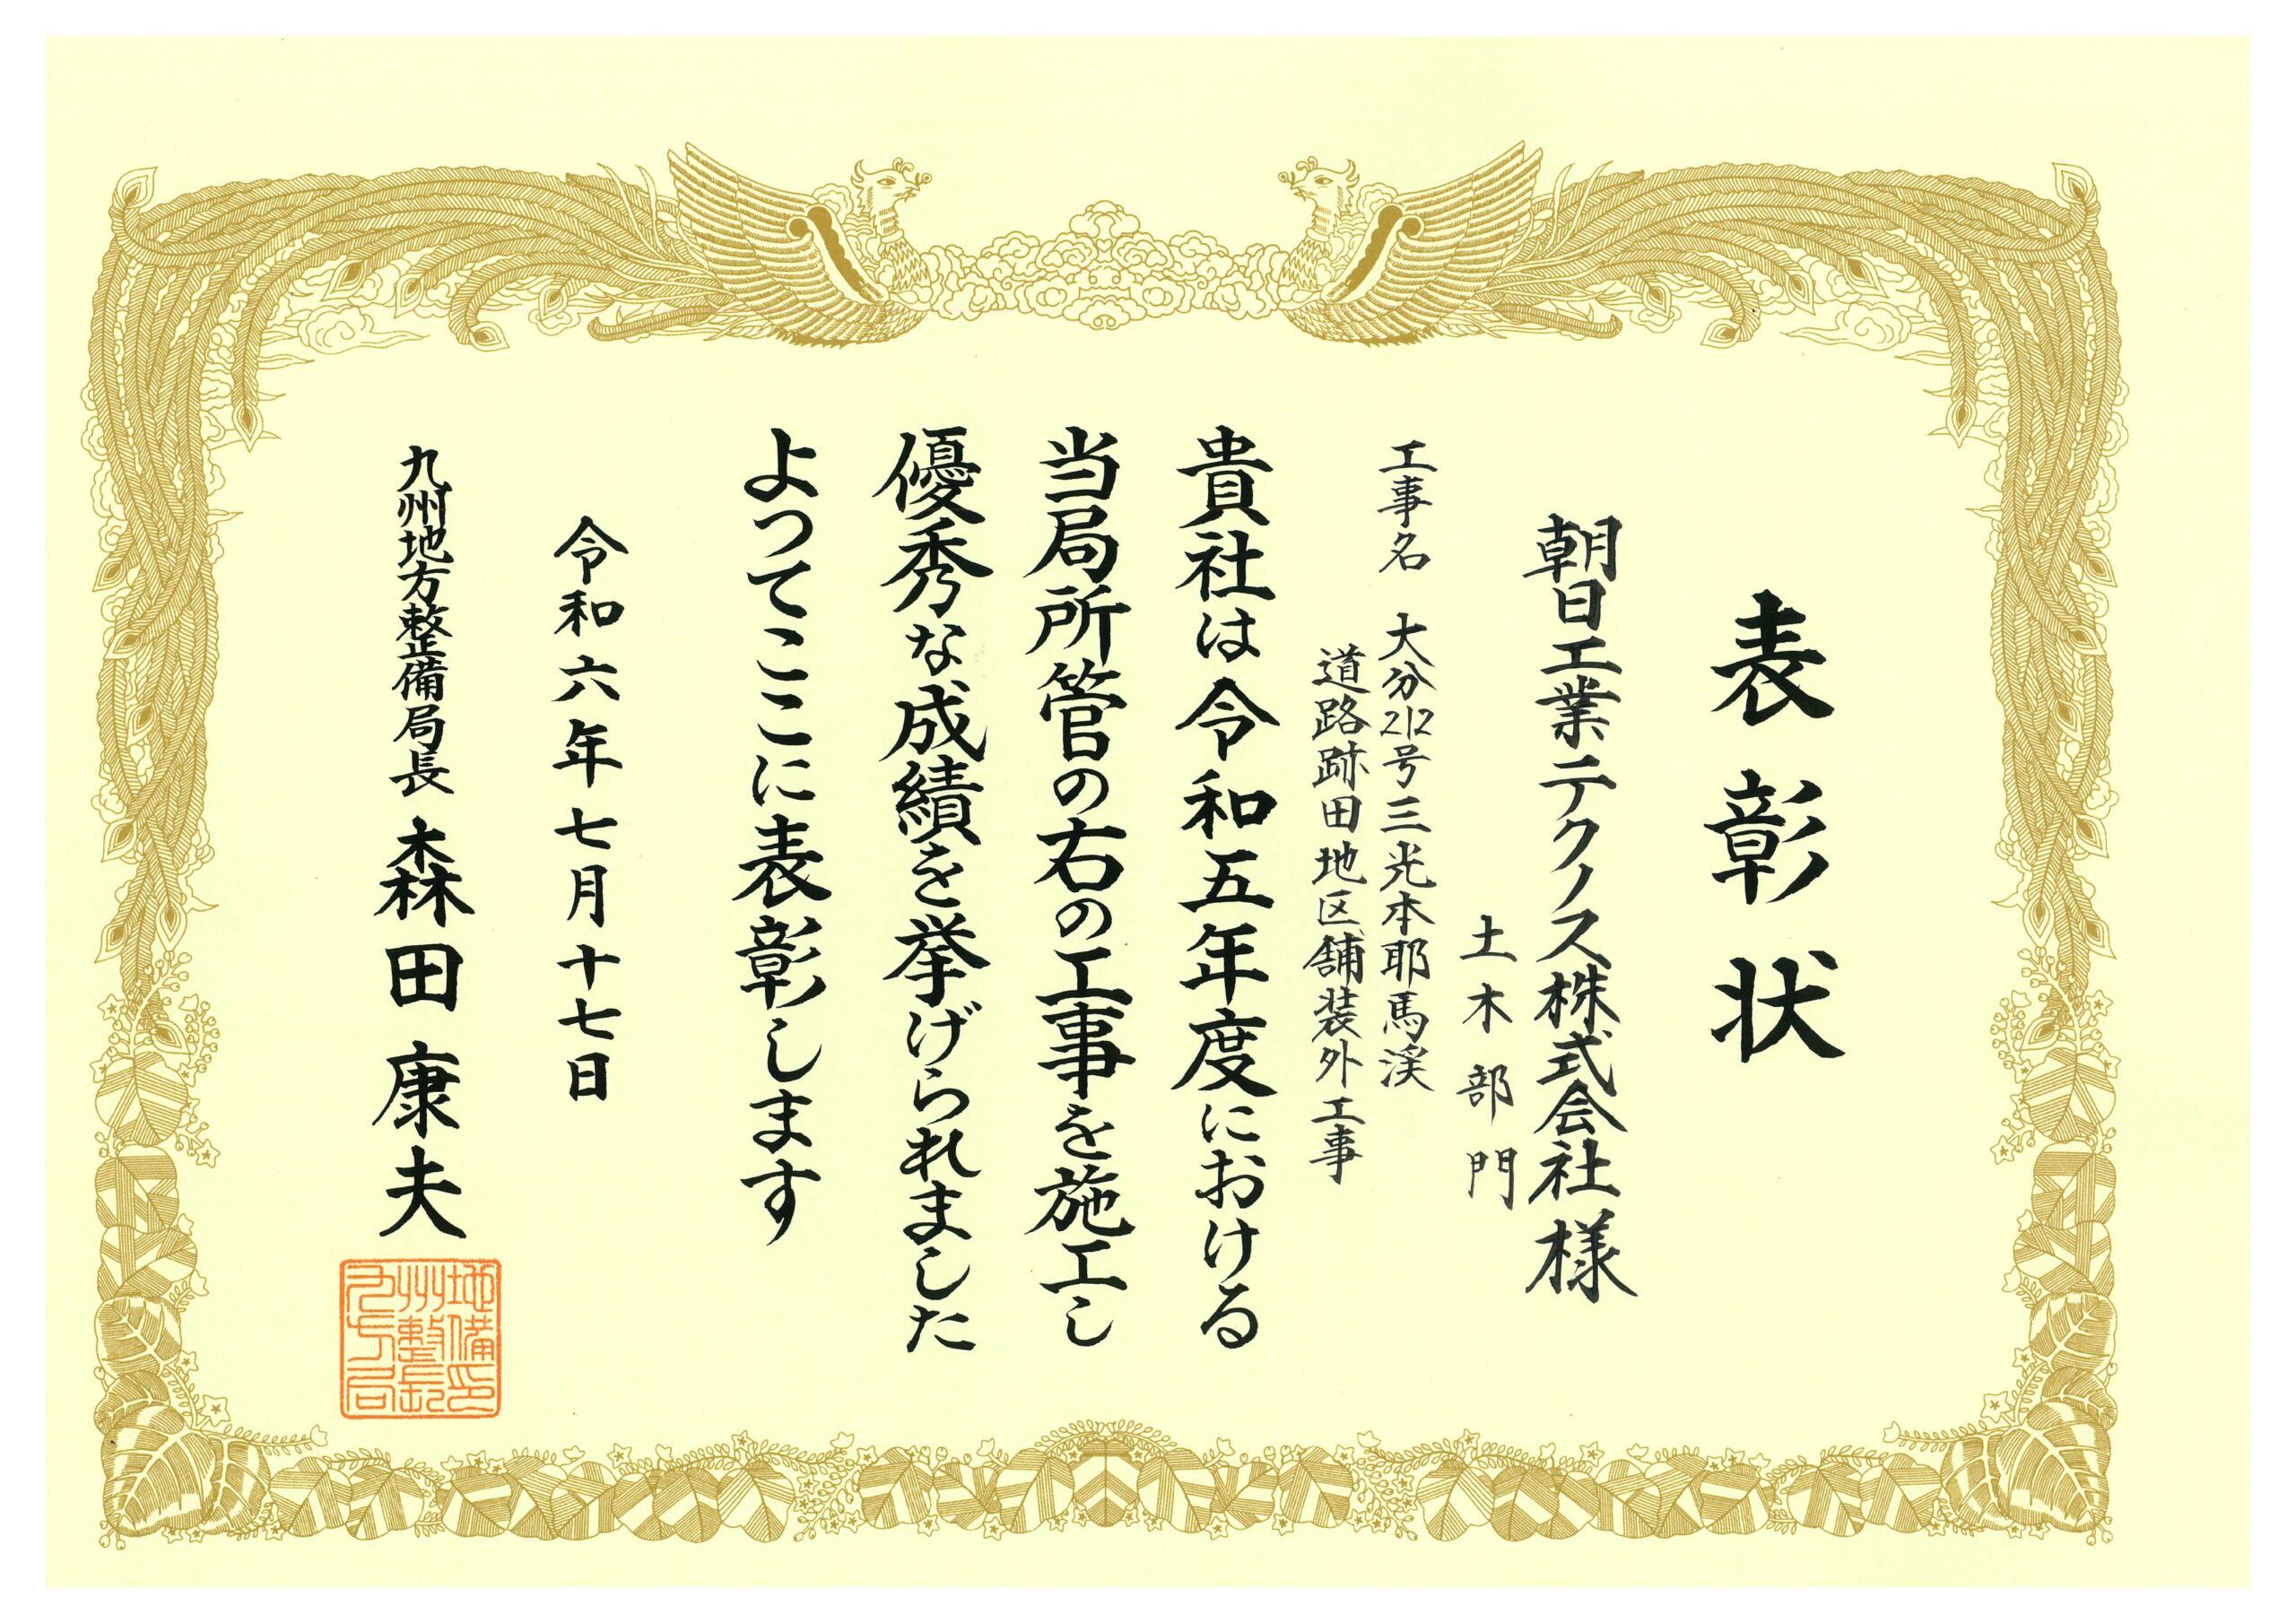 表彰状
朝日工業テクノス株式会社様
土木部門
工事名 大分212号三光本耶馬渓
道路跡田地区舗装外工事
貴社は令和五年度における
当局所管の右の工事を施工し
優秀な成績を挙げられました
よってここに表彰します
令和六年七月十七日
九州地方整備局長 森田康夫
地備印
州整長
九方局